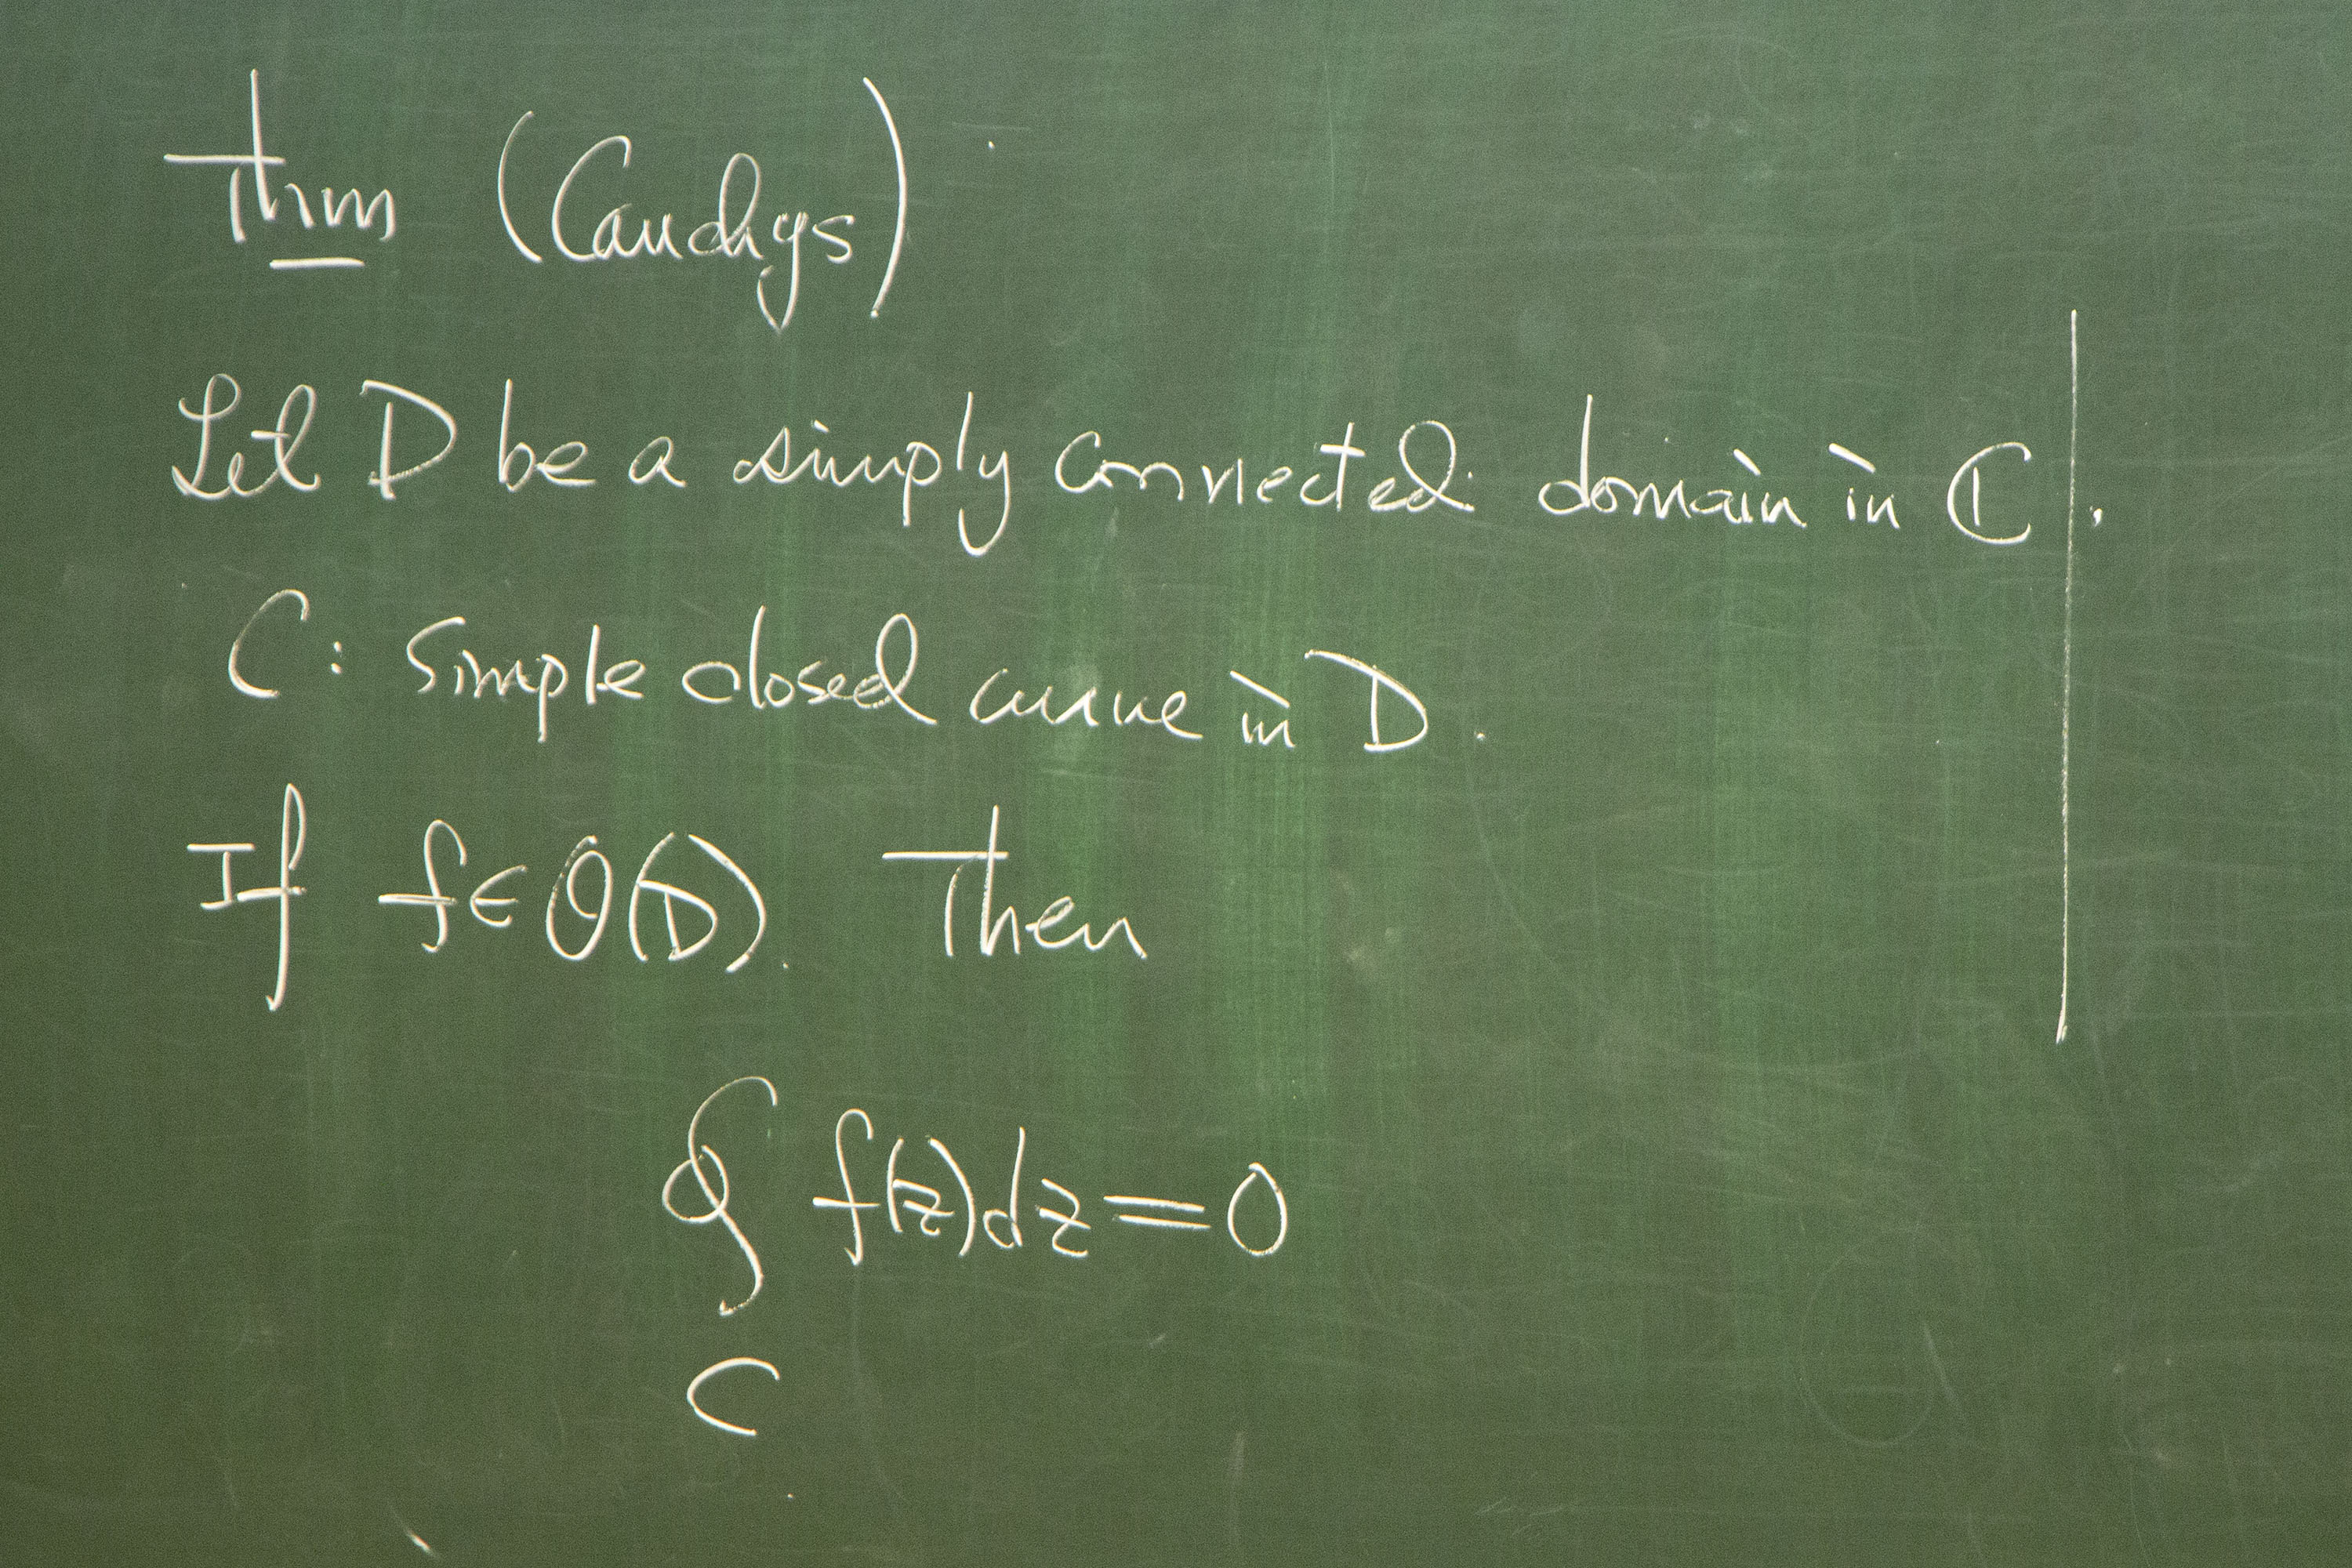 Thm (Cauchys)
Let D be a simply connected domain in ℂ.
C: Simple closed curve in D.
If f∈O(D). Then
∮ f(z)dz=0
C